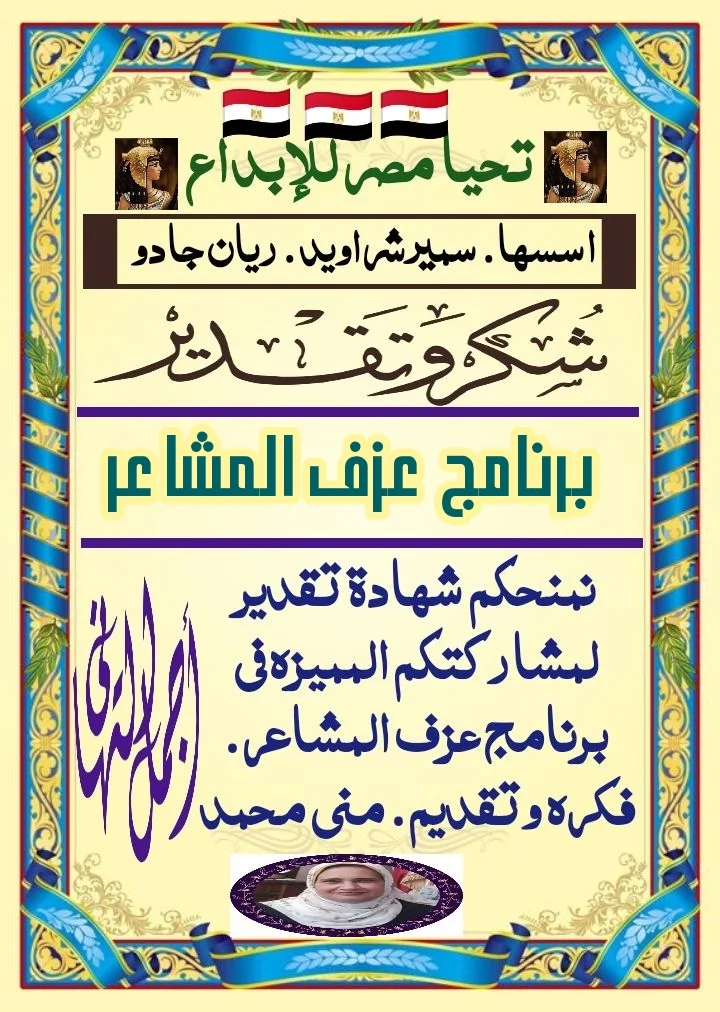 تحيا مصر للإبداع
اسسها . سمير شراويد . ريان جادو
شُكر وتقدير
برنامج عزف المشاعر
نمنحكم شهادة تقدير
لمشاركتكم المميزه فى
برنامج عزف المشاعر .
فكره وتقديم . منى محمد
أجمل التهاني